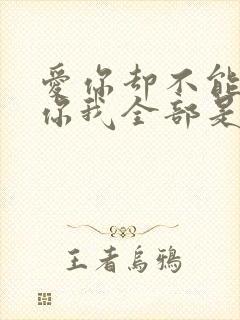 愛你却不能
你我全部是
王者烏鴉